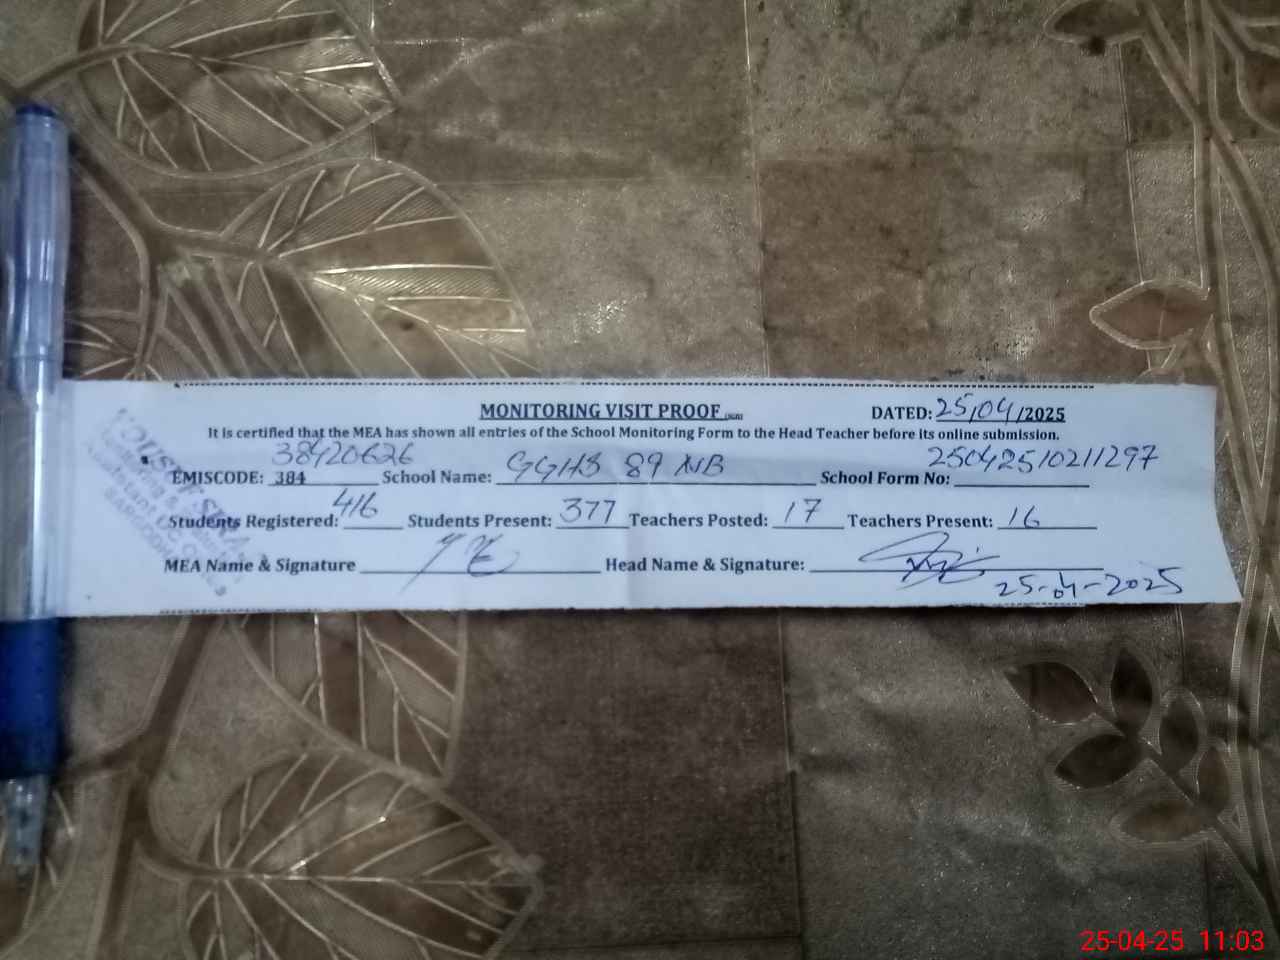 MONITORING VISIT PROOF
DATED: 25/04/2025
It is certified that the MEA has shown all entries of the School Monitoring Form to the Head Teacher before its online submission.
EMISCODE: 384 38420626 School Name: GGHS 89 NB School Form No: 25042510211297
Students Registered: 416 Students Present: 377 Teachers Posted: 17 Teachers Present: 16
MEA Name & Signature Head Name & Signature:
25-04-2025
25-04-25 11:03